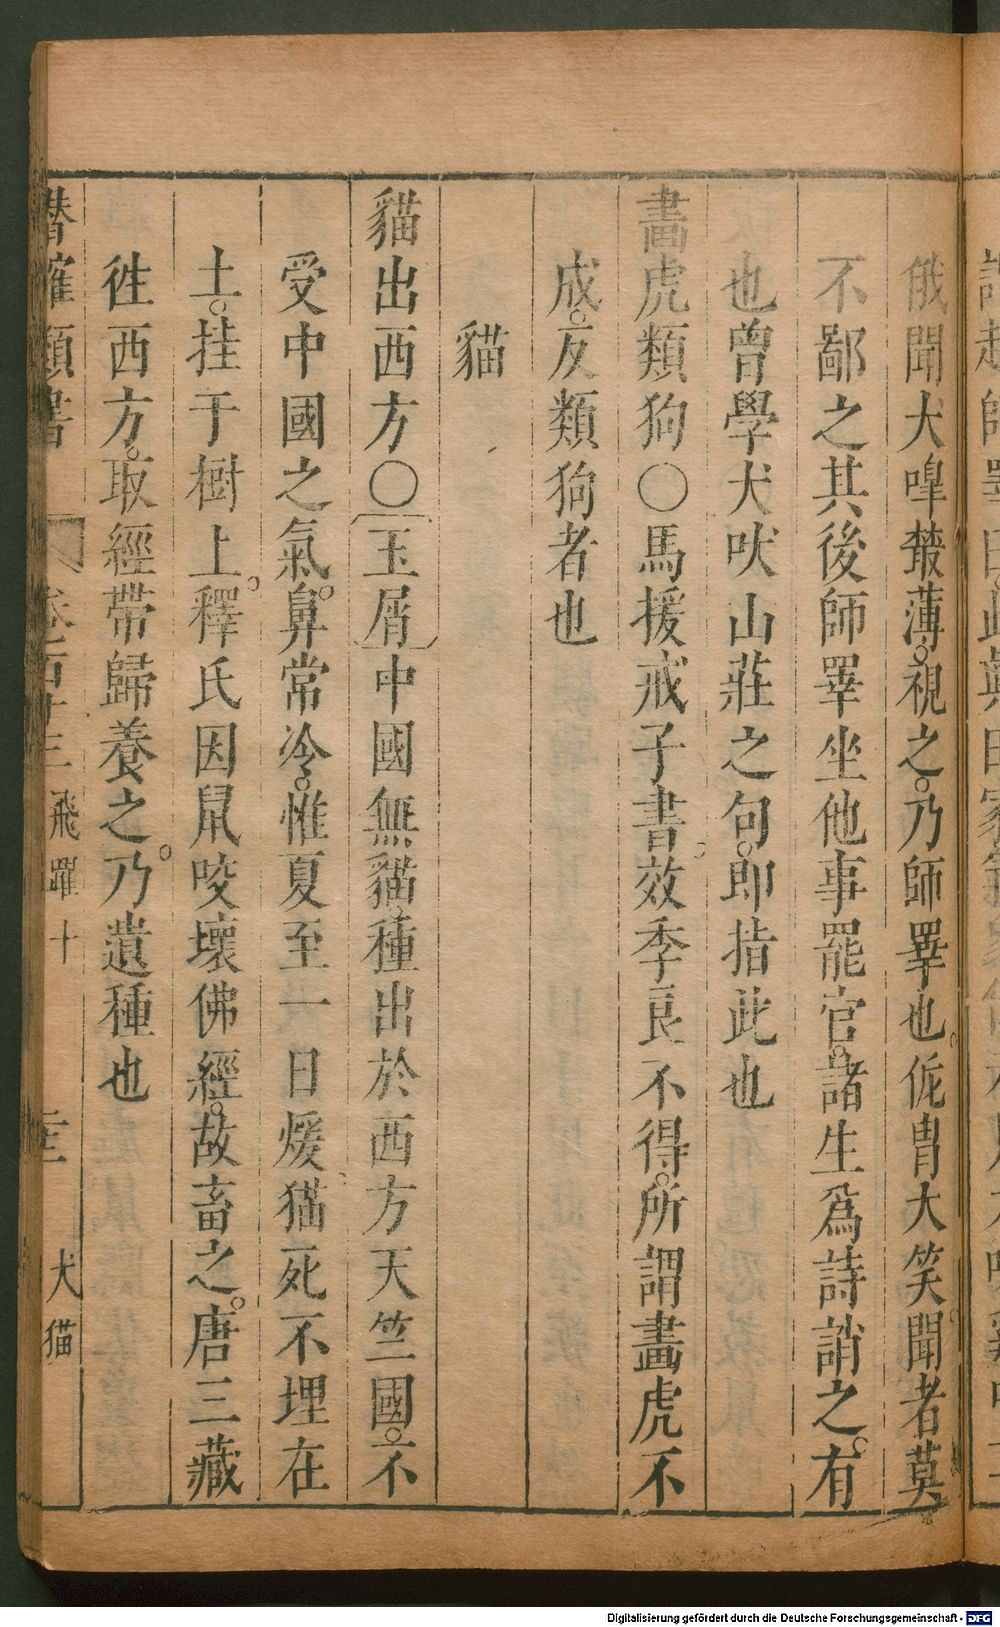 俄聞犬嘷叢薄視之乃師睪也侂胄大笑聞者莫
不鄙之其後師睪坐他事罷官諸生爲詩誚之有
也曾學犬吠山莊之句即指此也
畫虎類狗○馬援戒子書效季良不得所謂畫虎不
成反類狗者也
貓
貓出西方○玉屑中國無貓種出於西方天竺國不
受中國之氣鼻常冷惟夏至一日煖猫死不埋在
土挂于樹上釋氏因鼠咬壞佛經故畜之唐三藏
徃西方取經帶歸養之乃遺種也
潛確類書 卷之百十三 飛躍十 犬猫
Digitalisierung gefördert durch die Deutsche Forschungsgemeinschaft - DFG